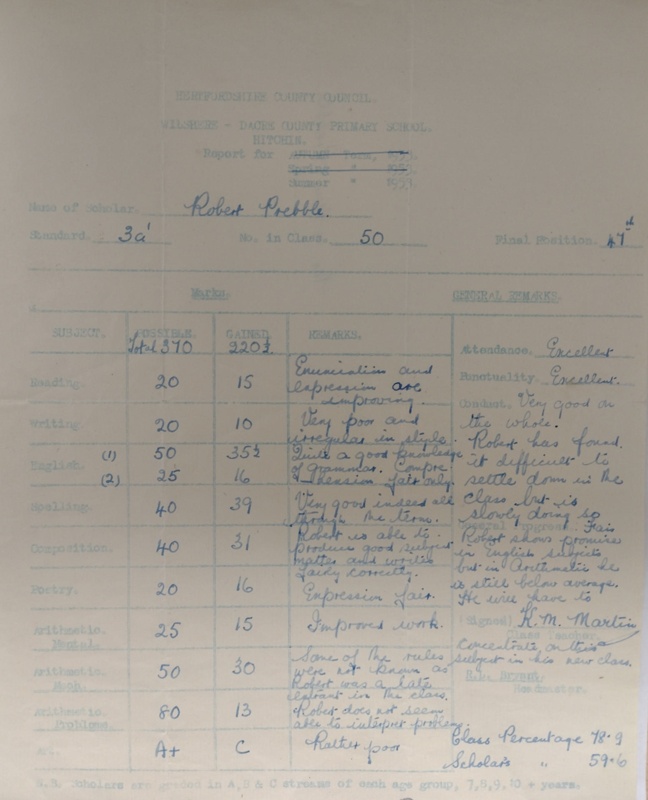 HERTFORDSHIRE COUNTY COUNCIL.
WILSHERE - DACRE COUNTY PRIMARY SCHOOL.
HITCHIN.
Report for Autumn Term, 1953.
Spring " 1953.
Summer " 1953.
Name of Scholar. Robert Prebble.
Standard. 3a' No. in Class. 50 Final Position. 47th
Marks. GENERAL REMARKS.
SUBJECT. POSSIBLE. GAINED. REMARKS.
Total 370 220½
Reading. 20 15 Enunciation and
expression are
improving.
Writing. 20 10 Very poor and
irregular in style.
English. (1) 50 35½ Quite a good knowledge
of grammar. Compre
(2) 25 16 hension fair only.
Spelling. 40 39 Very good indeed all
through the term.
Composition. 40 31 Robert is able to
produce good subject
matter and writes
fairly correctly.
Poetry. 20 16 Expression fair.
Arithmetic. 25 15 Improved work.
Mental.
Arithmetic. 50 30 Some of the rules
Mech. were not known as
Robert was a late
entrant in the class.
Arithmetic. 80 13 Robert does not seem
Problems. able to interpret problems.
Art. A+ C Rather poor
Attendance. Excellent
Punctuality. Excellent.
Conduct. Very good on
the whole.
Robert has found
it difficult to
settle down in the
class but is
slowly doing so
General Progress. Fair
Robert shows promise
in English subjects
but in Arithmetic he
is still below average.
He will have to
(Signed) K.M. Martin
Class Teacher.
concentrate on this
subject in his new class.
Headmaster.
Class Percentage 78.9
Scholars " 59.6
N.B. Scholars are graded in A,B & C streams of each age group, 7,8,9,10 + years.